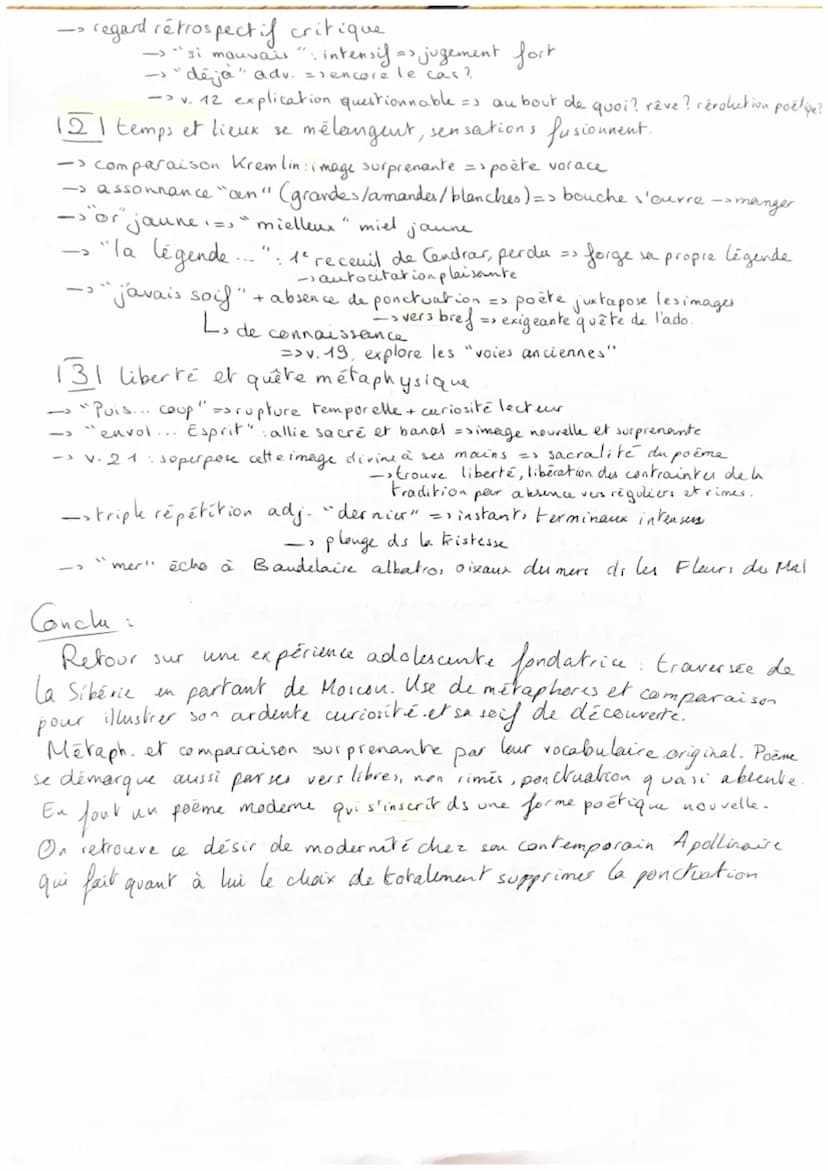 -> regard rétrospectif critique
-> "si mauvais" : intensif => jugement fort
-> "déjà" adv. => encore le cas?
-> v. 12 explication questionnable => au bout de quoi? rêve? révolution poétique?
|2| temps et lieux se mélangent, sensations fusionnent.
-> comparaison Kremlin : image surprenante => poète vorace
-> assonnance "an" (grandes/amandes/blanches) => bouche s'ouvre -> manger
-> "or" jaune => "mielleux" miel jaune
-> "la légende ..." : 1e receuil de Cendrar, perdu => forge sa propre légende
-> autocitation plaisante
-> "j'avais soif" + absence de ponctuation => poète juxtapose les images
-> vers bref => exigeante quête de l'ado.
L> de connaissance
=> v. 19, explore les "voies anciennes"
|3| liberté et quête métaphysique
-> "Puis... coup" => rupture temporelle + curiosité lecteur
-> "envol ... Esprit" : allie sacré et banal => image nouvelle et surprenante
-> v. 21 : soperpose cette image divine à ses mains => sacralité du poème
-> trouve liberté, libération des contraintes de la
tradition par absence vers réguliers et rimes.
-> triple répétition adj. "dernier" => instants terminaux intenses
-> plonge ds la tristesse
-> "mer" écho à Baudelaire albatros oiseaux du mers ds les Fleurs du Mal
Conclu :
Retour sur une expérience adolescente fondatrice : traversée de
la Sibérie en partant de Moscou. Use de métaphores et comparaison
pour illustrer son ardente curiosité et sa soif de découverte.
Métaph. et comparaison surprenante par leur vocabulaire original. Poème
se démarque aussi par ses vers libres, non rimés, ponctuation quasi absente.
En font un poème moderne qui s'inscrit ds une forme poétique nouvelle.
On retrouve ce désir de modernité chez son contemporain Apollinaire
qui fait quant à lui le choix de totalement supprimer la ponctuation